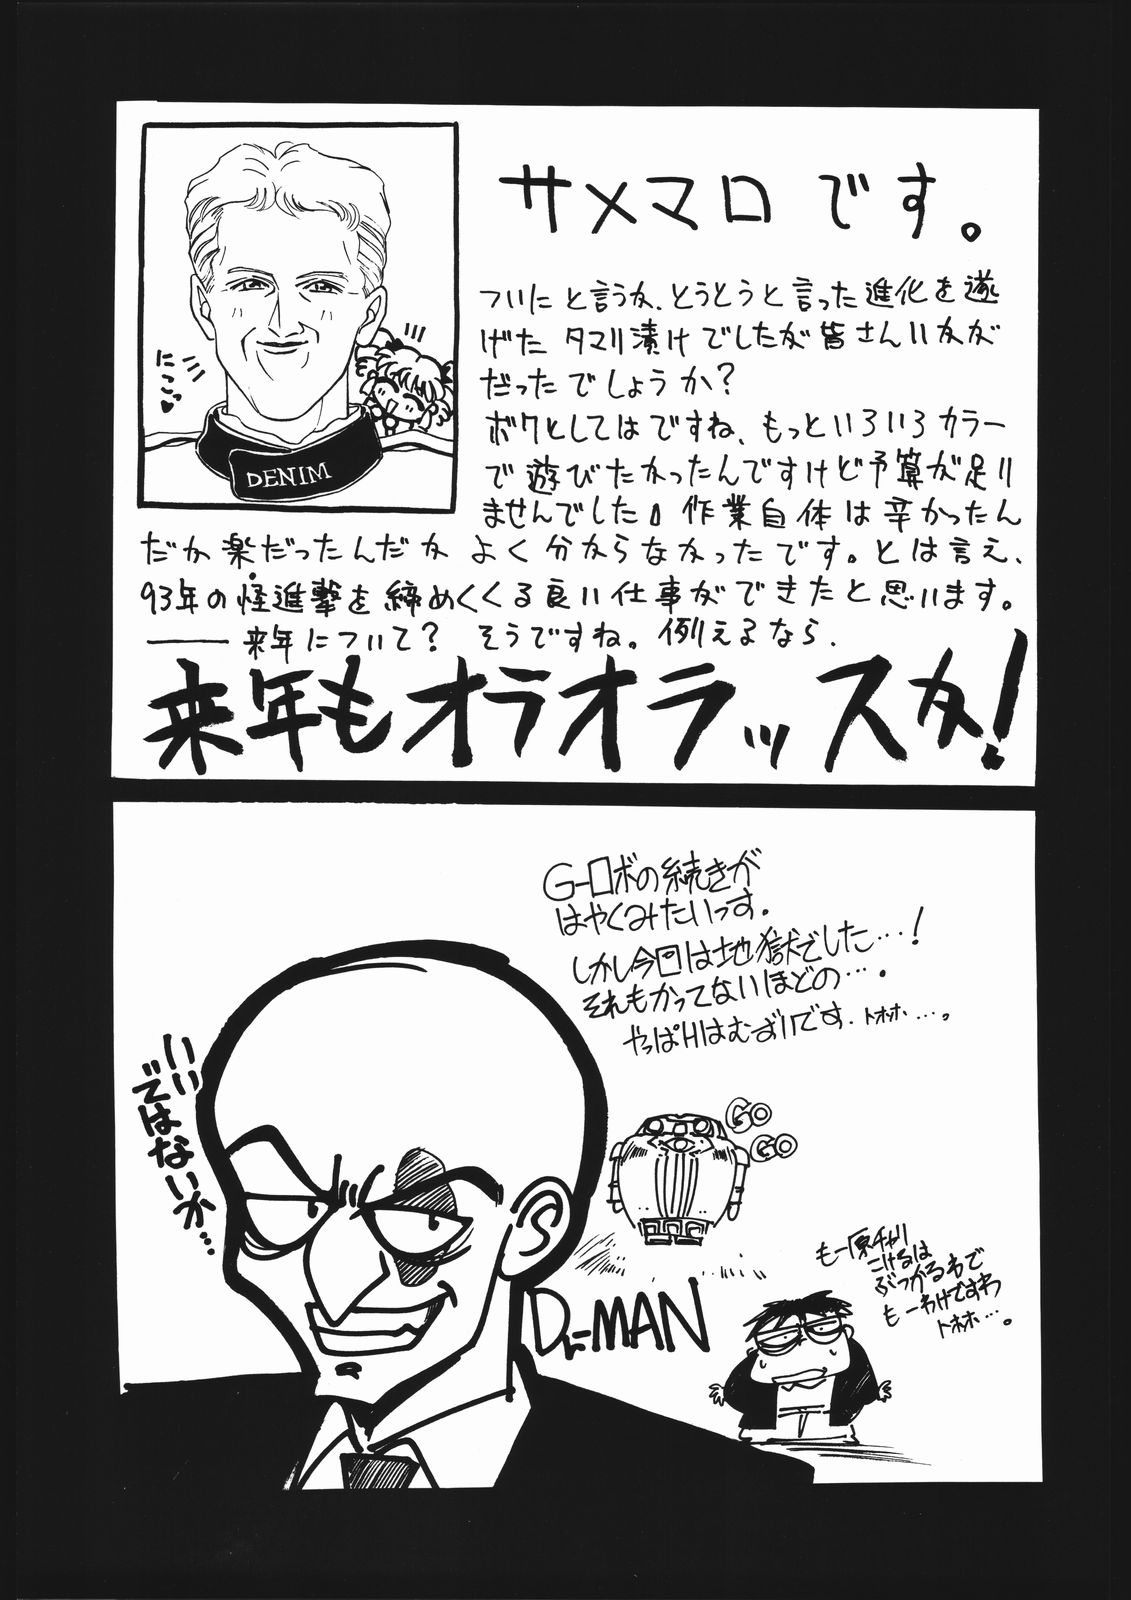 サメマロです。
ついにと言うか、とうとうと言った進化を遂
げたタマリ漬けでしたが皆さんいかが
だったでしょうか?
ボクとしてはですね、もっといろいろカラー
で遊びたかったんですけど予算が足り
ませんでした。作業自体は辛かったん
だか楽だったんだか よく分からなかったです。とは言え、
93年の怪進撃を締めくくる良い仕事ができたと思います。
――来年について? そうですね。例えるなら、
来年もオラオラッスよ!
にこっ♥
DENIM
G-ロボの続きが
はやくみたいっす。
しかし今回は地獄でした…!
それもかってないほどの…。
やっぱHはむずいです. トホホ…。
いい
ではないか…
GO
GO
Dr-MAN
もー原チャリ
こけるは
ぶつかるわで
もーわけですわ
トホホ…。